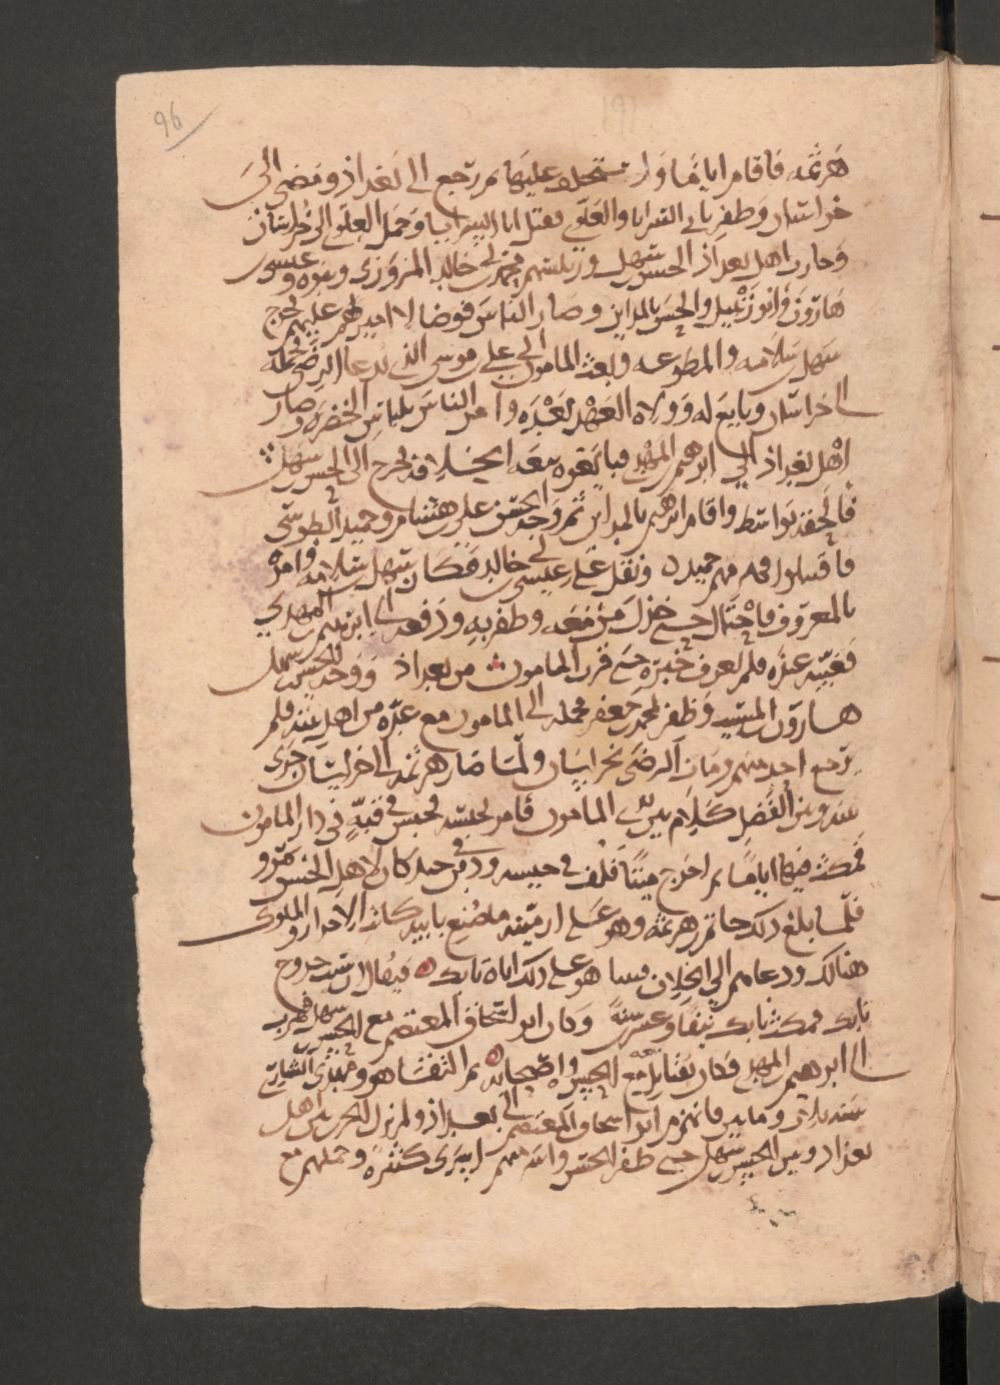 96
هرثمه فاقام اياما واستخلف عليها ثم رجع الى بغداذ ومضى الى
خراسان وظفر بابي السرايا والعلوي فقتل ابا السرايا وحمل العلوي الى خراسان
وحارب اهل بغداذ الحسن بن سهل ورئيسهم محمد بن ابي خالد المروزي وبنوه وعيسى
هارون وابو زنبيل والحسن بالمداين وصار الناس فوضا لا امير لهم عليهم فخرج
سهل بن سلامه والمطوعه وبعث المامون الى علي بن موسى الذي يدعا الرضى فحمله
الى خراسان وبايع له وولاه العهد بعده وامر الناس بلباس الخضره وصار
اهل بغداذ الى ابرهيم بن المهدي فبايعوه بعد الخلافه فخرج الى الحسن بن سهل
فالحقه بواسط واقام ابرهيم بالمداين ثم وجه الحسن علي بن هشام وحميد الطوسي
فاقتتلوا فهزمهم حميد ونقل علي عيسى بن ابي خالد فكان سهل بن سلامه وامره
بالمعروف فاحتال حتى خذل من معه وظفر به ودفعه الى ابرهيم بن المهدي
فغيبه عنده فلم يعرف خبره حتى قرب المامون من بغداذ ووجه الحسن بن سهل
هارون بن المسيب وظفر لمحمد بن جعفر فحمله الى المامون مع عده من اهل بيته فلم
يرجع احد منهم ومات الرضى بخراسان ولما صار هرثمه الى خراسان جرى
بينه وبين الفضل كلام بين يدي المامون فامر بحبسه فحبس في قبه في دار المامون
فمكث فيها اياما ثم اخرج ميتا فلف في خيشه ودفن في خندق كان لاهل الحبس بمرو
فلما بلغ ذلك حاتم بن هرثمه وهو على ارمينيه ما صنع بابيه كاتب الاحرار والملوك
هنالك ودعاهم الى الخلاف فبينا هو على ذلك اتاه بابك فيقال ان سبب خروج
بابك فمكث بابك نيفا وعشرين سنة وكان ابو اسحاق المعتصم مع الحسن بن سهل فهرب
الى ابرهيم بن المهدي فكان يقاتل معه الحسن واصحابه ثم التقيا هو ومهدي الشاري
سنه ثلاث ومايتين فانهزم ابو اسحاق المعتصم الى بغداذ ولم يزل الحرب بين اهل
بغداد وبين الحسن بن سهل حتى ظفر الحسن واسر منهم اسرى كثيرة وحملهم مع